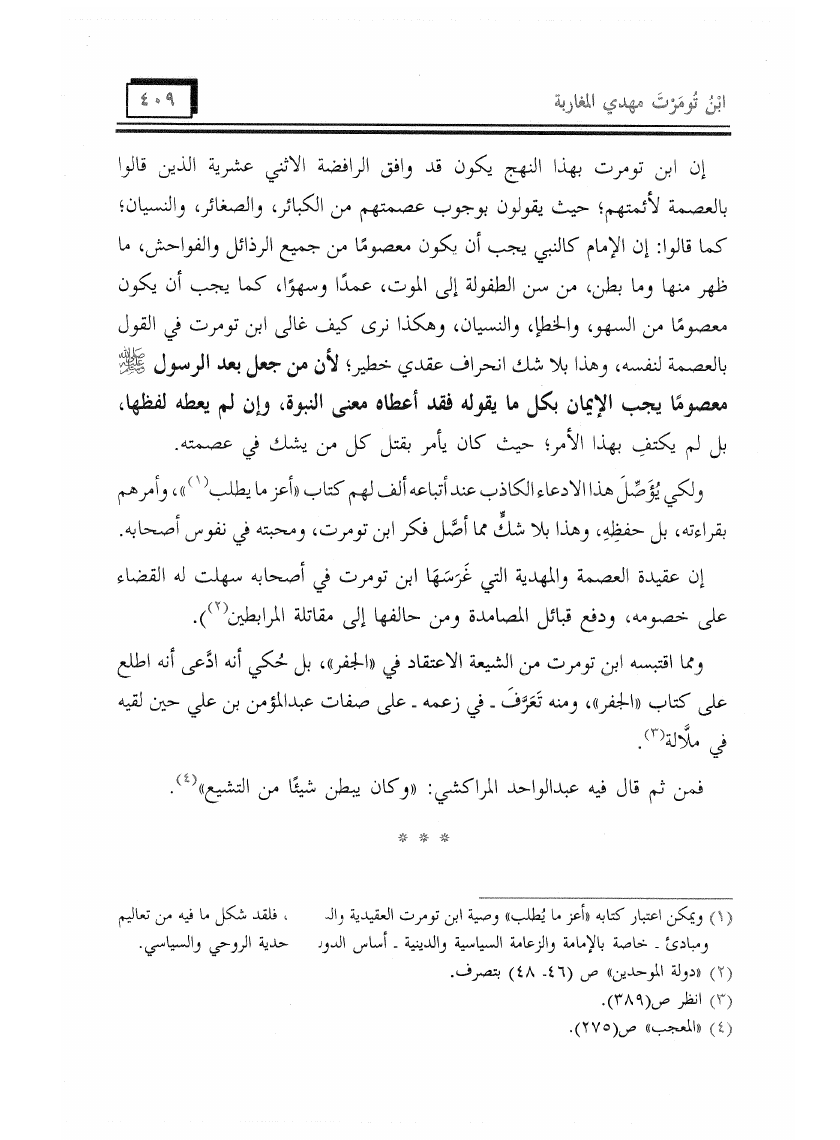 ابْنُ تُومَرْتَ مهدي المغاربة
٤٠٩
إن ابن تومرت بهذا النهج يكون قد وافق الرافضة الاثني عشرية الذين قالوا
بالعصمة لأئمتهم؛ حيث يقولون بوجوب عصمتهم من الكبائر، والصغائر، والنسيان؛
كما قالوا: إن الإمام كالنبي يجب أن يكون معصومًا من جميع الرذائل والفواحش، ما
ظهر منها وما بطن، من سن الطفولة إلى الموت، عمدًا وسهوًا، كما يجب أن يكون
معصومًا من السهو، والخطإ، والنسيان، وهكذا نرى كيف غالى ابن تومرت في القول
بالعصمة لنفسه، وهذا بلا شك انحراف عقدي خطير؛ لأن من جعل بعد الرسول ﷺ
معصومًا يجب الإيمان بكل ما يقوله فقد أعطاه معنى النبوة، وإن لم يعطه لفظها،
بل لم يكتفِ بهذا الأمر؛ حيث كان يأمر بقتل كل من يشك في عصمته.
ولكي يُؤَصِّلَ هذا الادعاء الكاذب عند أتباعه ألف لهم كتاب «أعز ما يطلب(١)»، وأمرهم
بقراءته، بل حفظِهِ، وهذا بلا شكٍّ مما أصَّل فكر ابن تومرت، ومحبته في نفوس أصحابه.
إن عقيدة العصمة والمهدية التي غَرَسَهَا ابن تومرت في أصحابه سهلت له القضاء
على خصومه، ودفع قبائل المصامدة ومن حالفها إلى مقاتلة المرابطين(٢)).
ومما اقتبسه ابن تومرت من الشيعة الاعتقاد في «الجفر»، بل حُكي أنه ادَّعى أنه اطلع
على كتاب «الجفر»، ومنه تَعَرَّفَ ـ في زعمه ـ على صفات عبدالمؤمن بن علي حين لقيه
في ملَّالة(٣).
فمن ثم قال فيه عبدالواحد المراكشي: «وكان يبطن شيئًا من التشيع»(٤).
* * *
(١) ويمكن اعتبار كتابه «أعز ما يُطلب» وصية ابن تومرت العقيدية والـ ، فلقد شكل ما فيه من تعاليم
ومبادئ ـ خاصة بالإمامة والزعامة السياسية والدينية ـ أساس الدور حدية الروحي والسياسي.
(٢) «دولة الموحدين» ص (٤٦ـ ٤٨) بتصرف.
(٣) انظر ص(٣٨٩).
(٤) «المعجب» ص(٢٧٥).